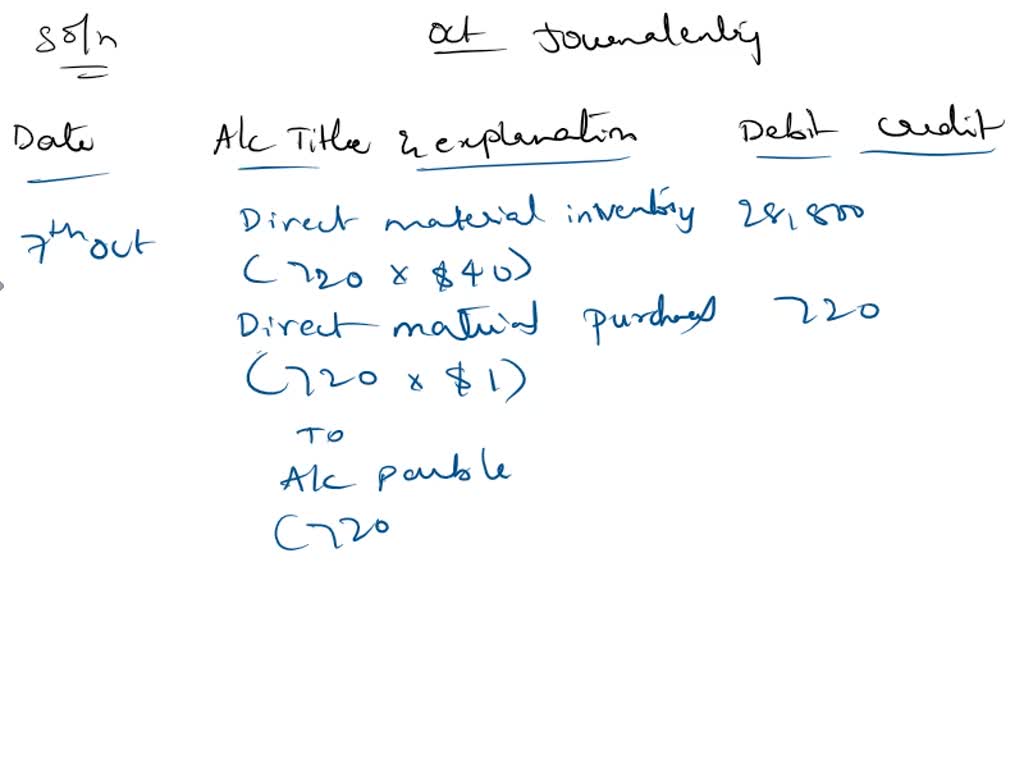 Soln
Oct Journalentry
Date A/c Title & explanation Debit Credit
7th Oct Direct material inventory 28,800
(720 x $40)
Direct material purchases 720
(720 x $1)
To
A/c payable
(720